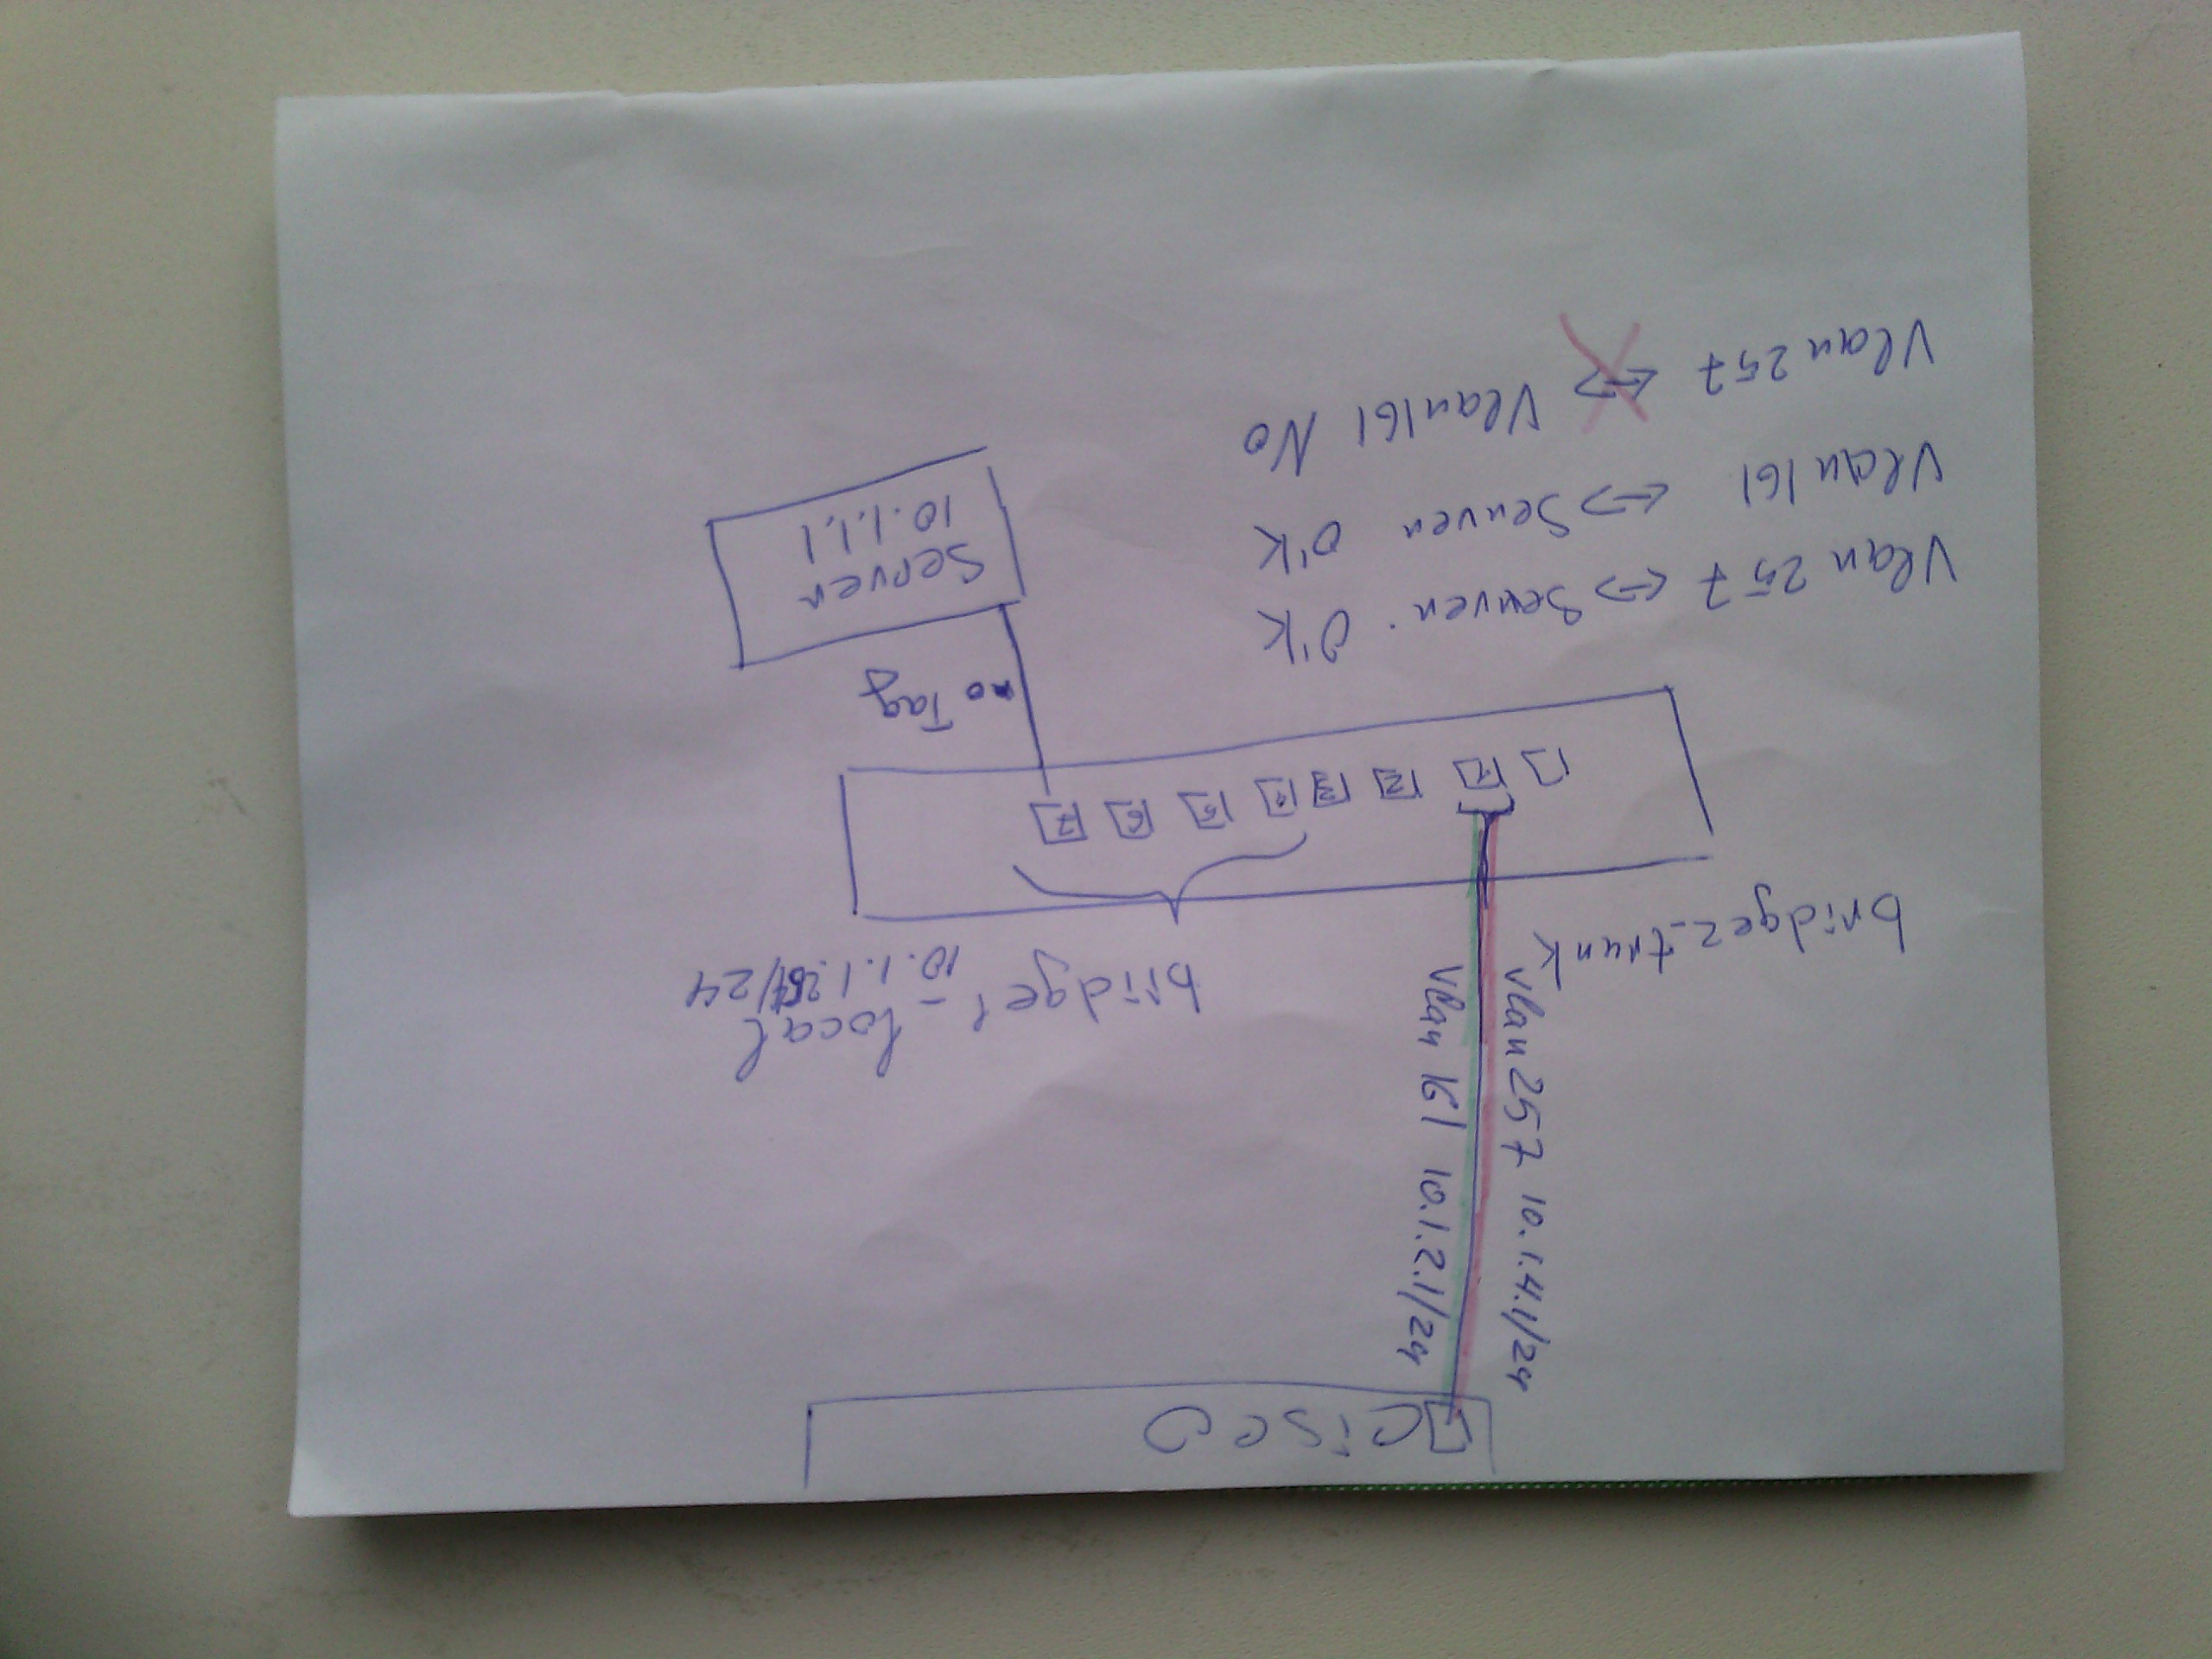 cisco
Vlan 257 10.1.4.1/24
Vlan 161 10.1.2.1/24
bridge2_trunk
bridge1-local
10.1.1.254/24
2 3 4 5 6 7
no Tag
Server
10.1.1.1
Vlan 257 <-> Server O'K
Vlan 161 <-> Server O'K
Vlan 257 <-> Vlan 161 No